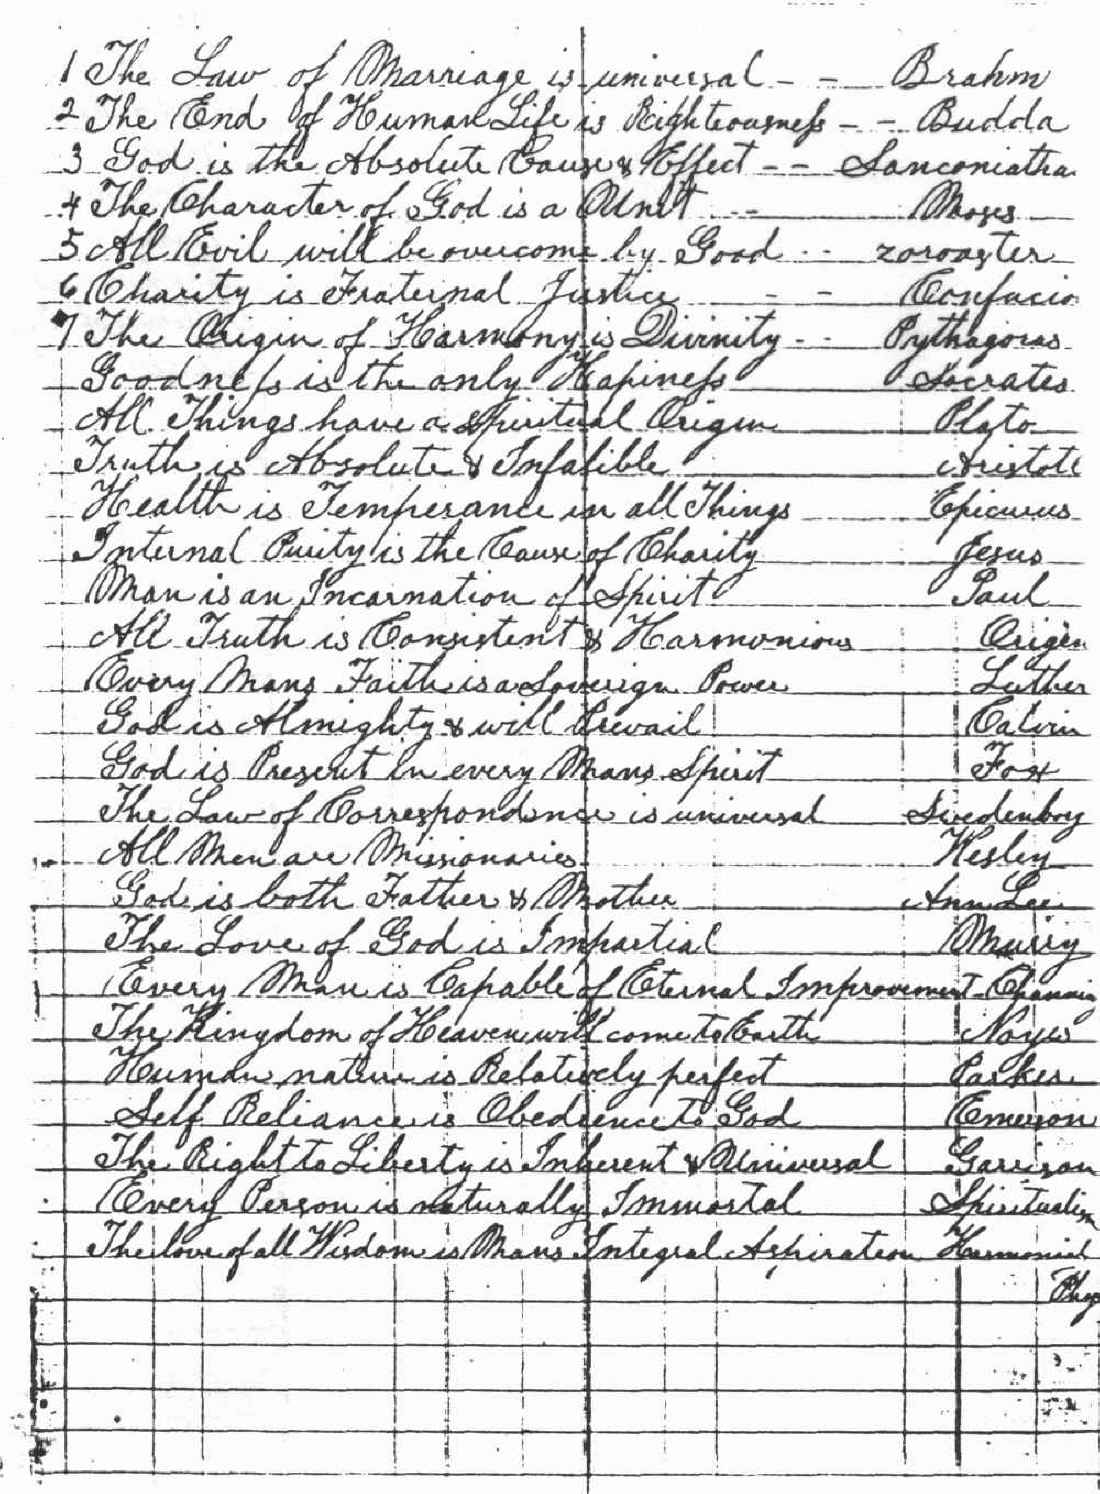 1 The Law of Marriage is universal - - Brahm
2 The End of Human Life is Righteousness - - Budda
3 God is the Absolute Cause & Effect - - Sanconiatha
4 The Character of God is a Unit - - Moses
5 All Evil will be overcome by Good - - zoroaster
6 Charity is Fraternal Justice - - Confucio
7 The Origin of Harmony is Divinity - - Pythagoras
Goodness is the only Hapiness Socrates
All Things have a Spiritual Origin Plato
Truth is Absolute & Infalible Aristotl
Health is Temperance in all Things Epicurus
Internal Purity is the Cause of Charity Jesus
Man is an Incarnation of Spirit Paul
All Truth is Consistent & Harmonious Origen
Every Mans Faith is a Soverign Power Luther
God is Almighty & will Prevail Calvin
God is Present in every Mans Spirit Fox
The Law of Correspondence is universal Swedenborg
All Men are Missionaries Wesley
God is both Father & Mother Ann Lee
The Love of God is Impartial Murry
Every Man is Capable of Eternal Improvement - Channing
The Kingdom of Heaven will come to Earth Noyes
Human nature is Relatively perfect Parker
Self Reliance is Obedience to God Emerson
The Right to Liberty is Inherent & Universal Garrison
Every Person is naturally Immortal Spiritualism
The love of all Wisdom is Mans Integral Aspiration Harmonial